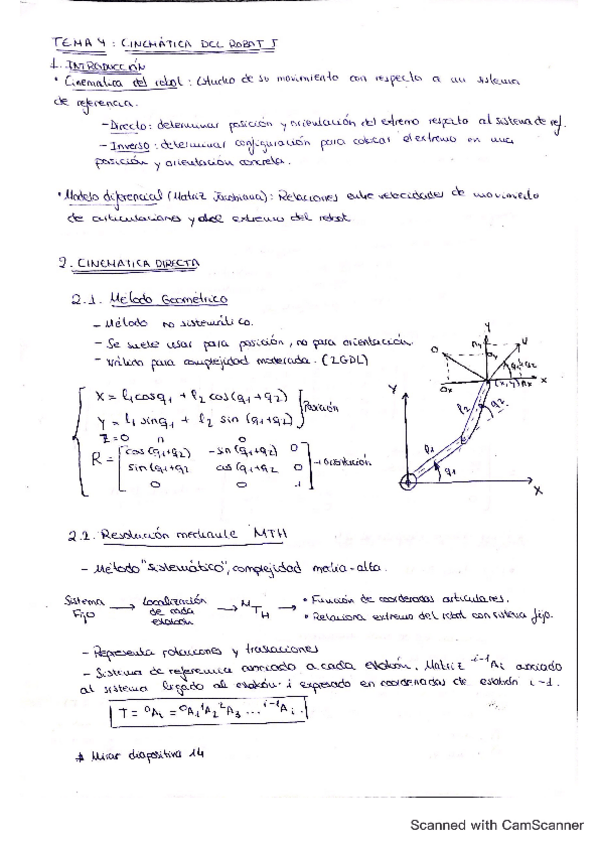 TEMA 4: CINEMÁTICA DEL ROBOT I
1. INTRODUCCIÓN
• Cinemática del robot: Estudio de su movimiento con respecto a un sistema
de referencia.
- Directo: determinar posición y orientación del extremo respecto al sistema de ref.
- Inverso: determinar configuración para colocar el extremo en una
posición y orientación concreta.
• Modelo diferencial (Matriz Jacobiana): Relaciones entre velocidades de movimiento
de articulaciones y del extremo del robot
2. CINEMATICA DIRECTA
2.1. Método Geométrico
- Método no sistemático.
- Se suele usar para posición, no para orientación.
- Válido para complejidad moderada. (2GDL)
X = l₁cosq₁ + l₂ cos(q₁+q₂)
Y = l₁ sinq₁ + l₂ sin (q₁+q₂)
Posición
Z=0
n o
R = cos(q₁+q₂) -sin(q₁+q₂) 0
sin(q₁+q₂ cos(q₁+q₂ 0
0 0 1
→ Orientación
Y
O
U
Ox
(x,y)
X
Y
l₂
q₂
l₁
q₁
X
2.2. Resolución mediante MTH
- Método "sistemático", complejidad media-alta.
Sistema Fijo → Localización de cada eslabón → MTH → • Función de coordenadas articulares.
• Relaciona extremo del robot con sistema fijo.
- Representa rotaciones y traslaciones
- Sistema de referencia asociado a cada eslabón. Matriz ⁱ⁻¹Aᵢ asociado
al sistema ligado al eslabón i expresado en coordenadas de eslabón i-1.
T = ⁰Aᵢ = ⁰A₁ ¹A₂ ²A₃ ... ⁱ⁻¹Aᵢ
* Mirar diapositiva 14
Scanned with CamScanner